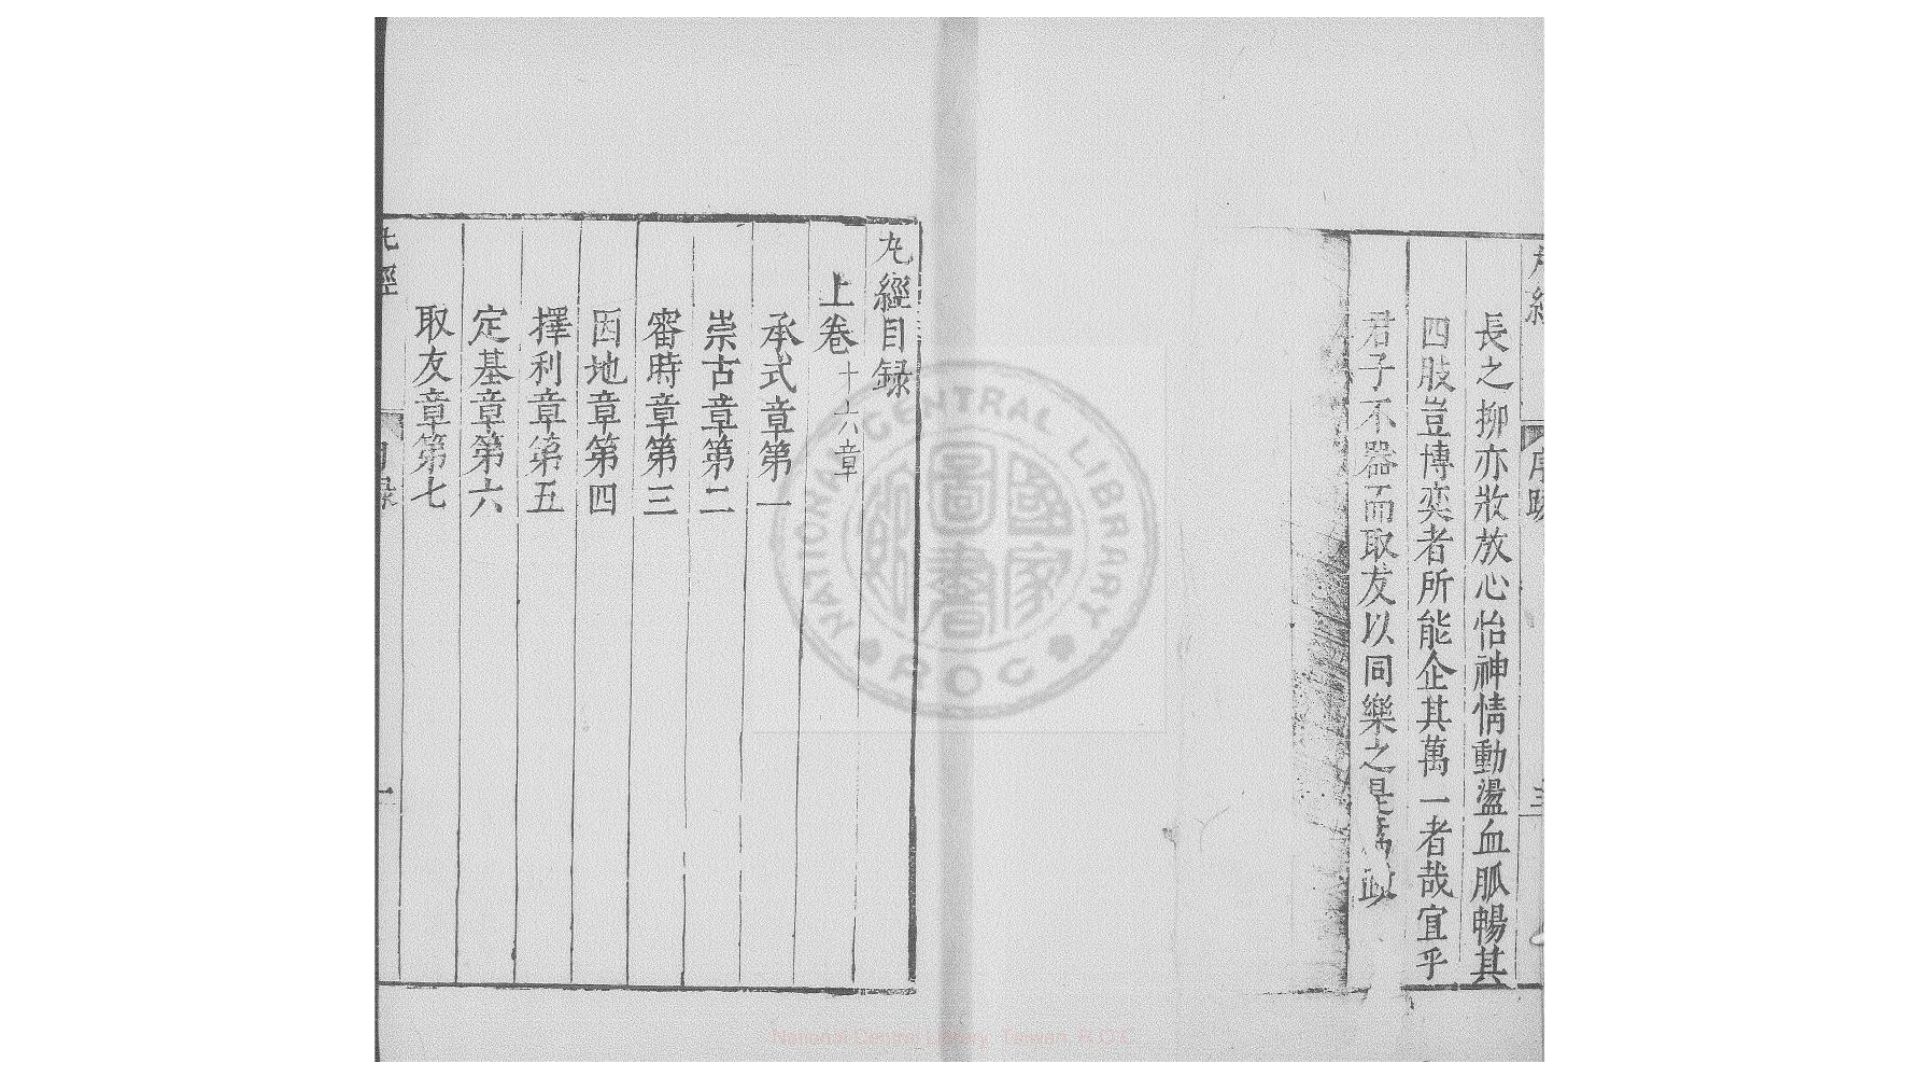 長之抑亦收放心怡神情動盪血脈暢其
四肢豈博奕者所能企其萬一者哉宜乎
君子不器而取友以同樂之是爲跋
丸經目録
上卷 十六章
承式章第一
崇古章第二
審時章第三
因地章第四
擇利章第五
定基章第六
取友章第七
NATIONAL CENTRAL LIBRARY
ROC
國家圖書館
National Central Library, Taiwan, R.O.C